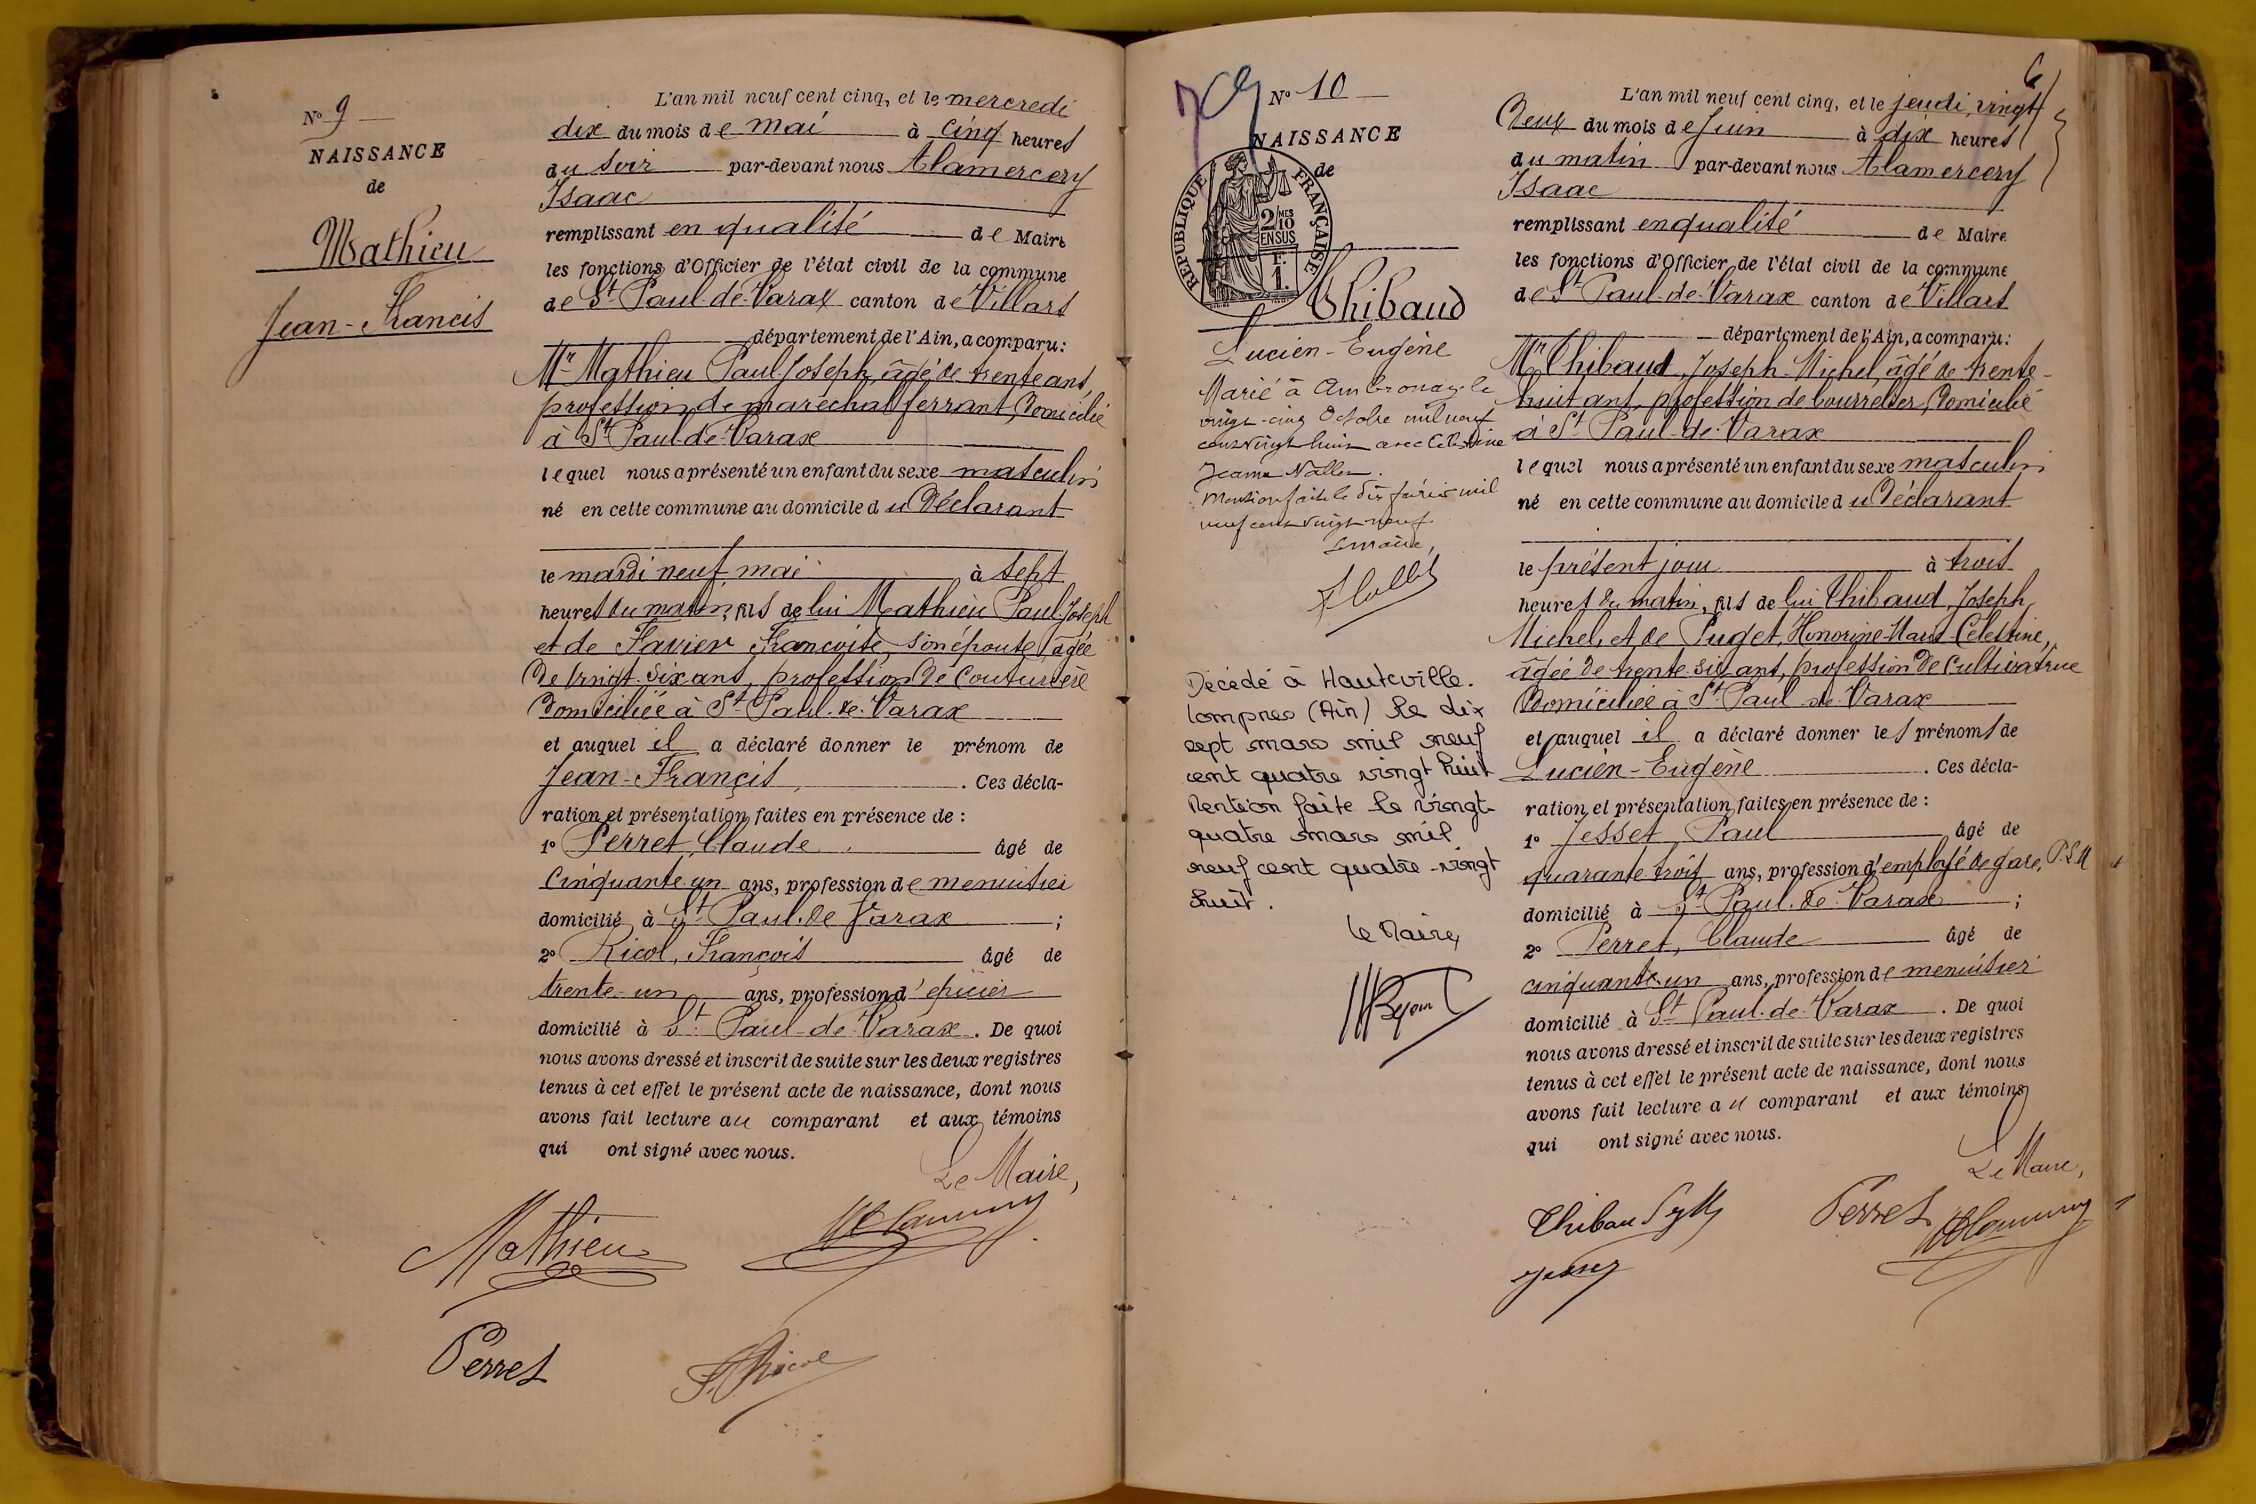 N° 9
NAISSANCE
de
Mathieu
Jean-Francis
L'an mil neuf cent cinq, et le mercredi
dix du mois de mai à cinq heures
du soir par-devant nous Alamercery
Isaac
remplissant en qualité de Maire
les fonctions d'Officier de l'état civil de la commune
de St Paul-de-Varax canton de Villars
département de l'Ain, a comparu:
Mr Mathieu Paul Joseph, âgé de trente ans,
profession de maréchal ferrant, domicilié
à St Paul-de-Varax
lequel nous a présenté un enfant du sexe masculin
né en cette commune au domicile du Déclarant
le mardi neuf mai à sept
heures du matin, fils de lui Mathieu Paul Joseph
et de Favier Françoise, son épouse, âgée
de vingt-six ans, profession de Couturière
domiciliée à St Paul-de-Varax
et auquel il a déclaré donner le prénom de
Jean-Françis, . Ces décla-
ration et présentation faites en présence de :
1° Perret, Claude âgé de
Cinquante-un ans, profession de menuisier
domicilié à St Paul-de-Varax ;
2° Ricol, François âgé de
trente-un ans, profession d'épicier
domicilié à St Paul-de-Varax. De quoi
nous avons dressé et inscrit de suite sur les deux registres
tenus à cet effet le présent acte de naissance, dont nous
avons fait lecture au comparant et aux témoins
qui ont signé avec nous.
Le Maire,
Mathieu
Perret
F. Ricol
6
N° 10
NAISSANCE
de
RÉPUBLIQUE FRANÇAISE
2/10 MES
EN SUS
F.
1.
Thibaud
Lucien-Eugène
Marié à Ambronay le
vingt-cinq Octobre mil neuf
cent vingt huit avec Célestine
Jeanne
Mention faite le dix février mil
neuf cent vingt-neuf
Le maire,
Décédé à Hauteville.
Lompnes (Ain) le dix
sept mars mil neuf
cent quatre vingt huit
Mention faite le vingt-
quatre mars mil
neuf cent quatre-vingt
huit.
Le Maire,
L'an mil neuf cent cinq, et le jeudi, vingt
Deux du mois de Juin à dix heures
du matin par-devant nous Alamercery
Isaac
remplissant en qualité de Maire
les fonctions d'Officier de l'état civil de la commune
de St Paul-de-Varax canton de Villars
département de l'Ain, a comparu:
Mr Thibaud, Joseph-Michel, âgé de trente-
huit ans, profession de bourrelier, domicilié
à St Paul-de-Varax
lequel nous a présenté un enfant du sexe masculin
né en cette commune au domicile du Déclarant
le présent jour à trois
heures du matin, fils de lui Thibaud, Joseph
Michel, et de Puget, Honorine-Marie-Célestine,
âgée de trente six ans, profession de Cultivatrice
Domiciliée à St Paul-de-Varax
et auquel il a déclaré donner les prénoms de
Lucien-Eugène . Ces décla-
ration et présentation faites en présence de :
1° Jesset, Paul âgé de
quarante-trois ans, profession d'employé de gare, P.L.M
domicilié à St Paul-de-Varax ;
2° Perret, Claude âgé de
cinquante-un ans, profession de menuisier
domicilié à St Paul-de-Varax. De quoi
nous avons dressé et inscrit de suite sur les deux registres
tenus à cet effet le présent acte de naissance, dont nous
avons fait lecture au comparant et aux témoins
qui ont signé avec nous.
Le Maire,
Perret